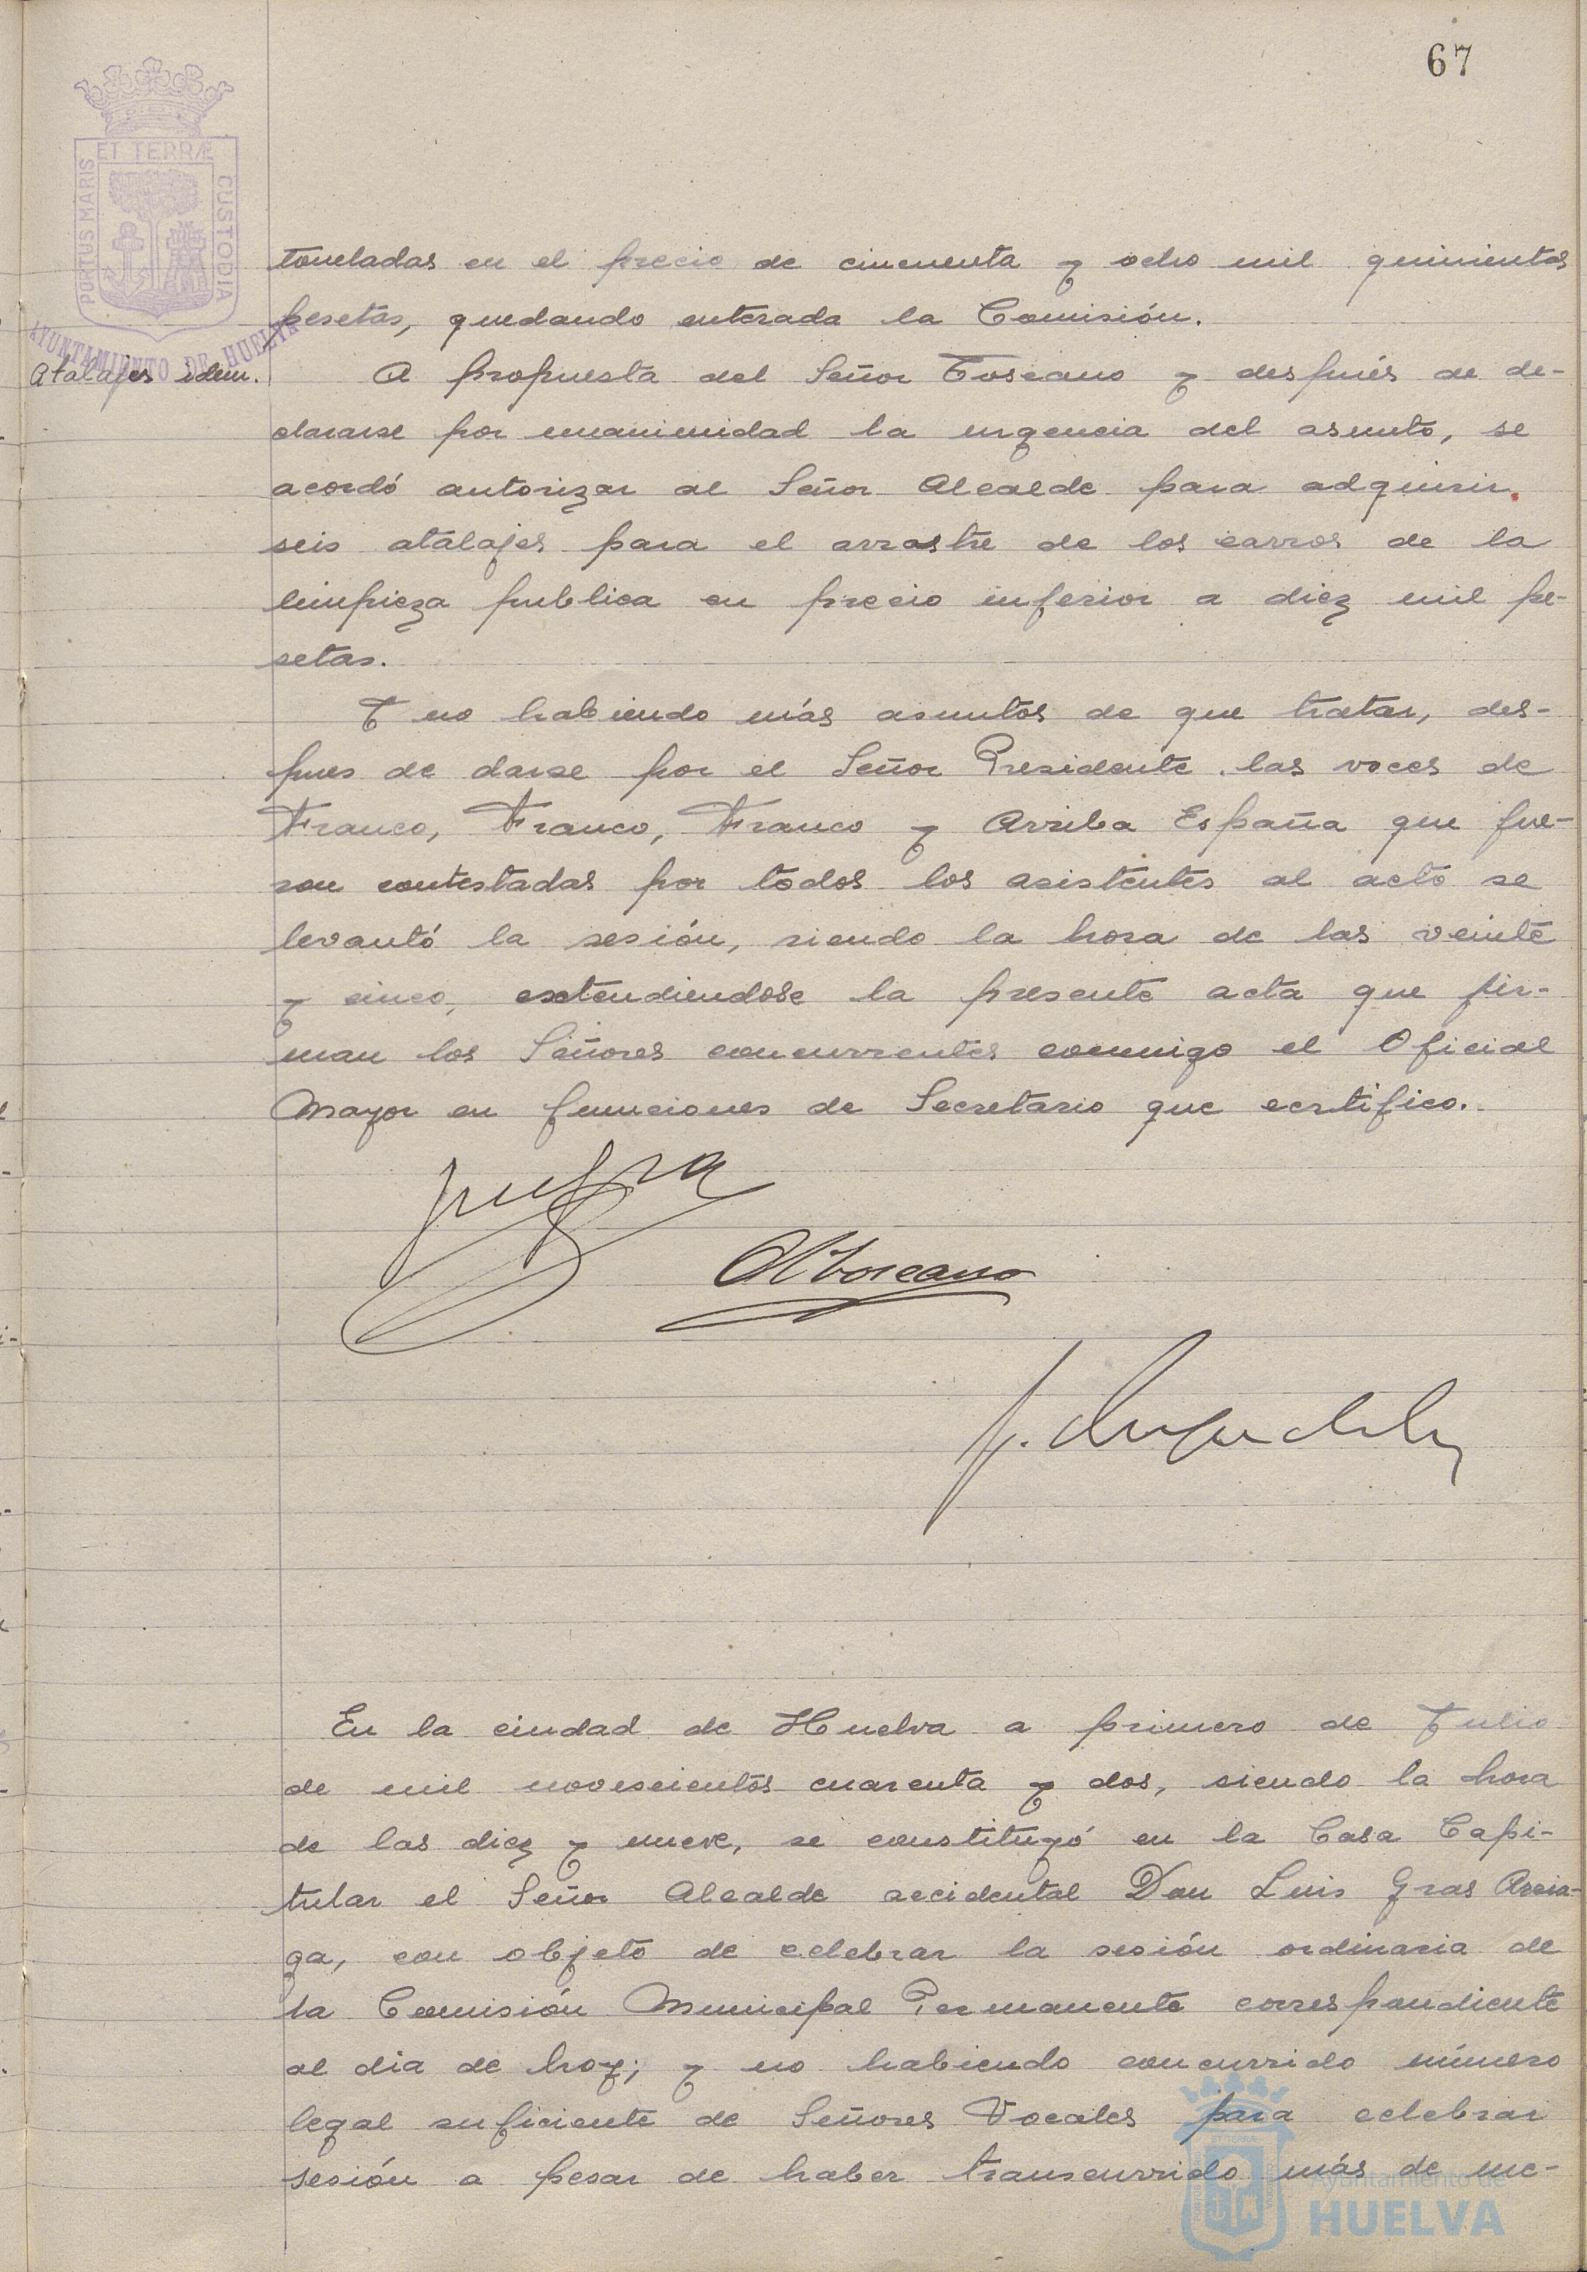 67
ET TERRÆ
PORTUS MARIS
CUSTODIA
AYUNTAMIENTO DE HUELVA
toneladas en el precio de cincuenta y ocho mil quinientas
pesetas, quedando enterada la Comisión.
Atalajes idem.
A propuesta del Señor Toscano y después de de-
clararse por unanimidad la urgencia del asunto, se
acordó autorizar al Señor Alcalde para adquirir
seis atalajes para el arrastre de los carros de la
limpieza publica en precio inferior a diez mil pe-
setas.
Y no habiendo más asuntos de que tratar, des-
pues de darse por el Señor Presidente las voces de
Franco, Franco, Franco y Arriba España que fue-
ron contestadas por todos los asistentes al acto se
levantó la sesión, siendo la hora de las veinte
y cinco, extendiendose la presente acta que fir-
man los Señores concurrentes conmigo el Oficial
Mayor en funciones de Secretario que certifico.
Toscano
En la ciudad de Huelva a primero de Julio
de mil novescientos cuarenta y dos, siendo la hora
de las diez y nueve, se constituyó en la Casa Capi-
tular el Señor Alcalde accidental Don Luis Gras Arcia-
ga, con objeto de celebrar la sesión ordinaria de
la Comisión Municipal Permanente correspondiente
al dia de hoy; y no habiendo concurrido número
legal suficiente de Señores Vocales para celebrar
sesión a pesar de haber transcurrido más de me-
Ayuntamiento de
HUELVA